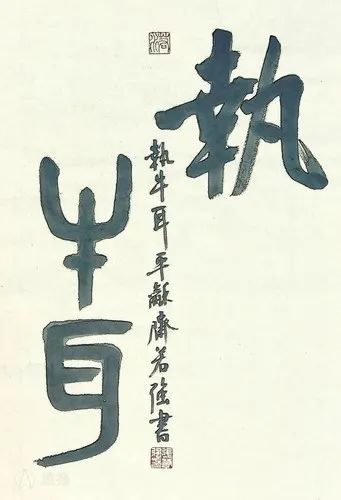 執
牛耳
執牛耳平龢齋若強書